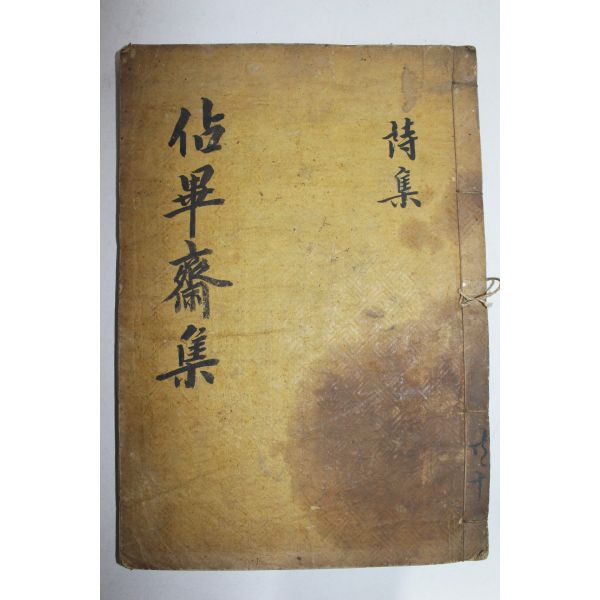 詩集
佔畢齋集
十